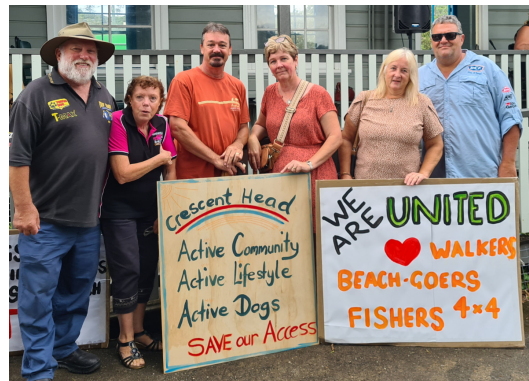 Crescent Head
Active Community
Active Lifestyle
Active Dogs
SAVE our Access
WE ARE UNITED
WALKERS
BEACH-GOERS
FISHERS 4x4